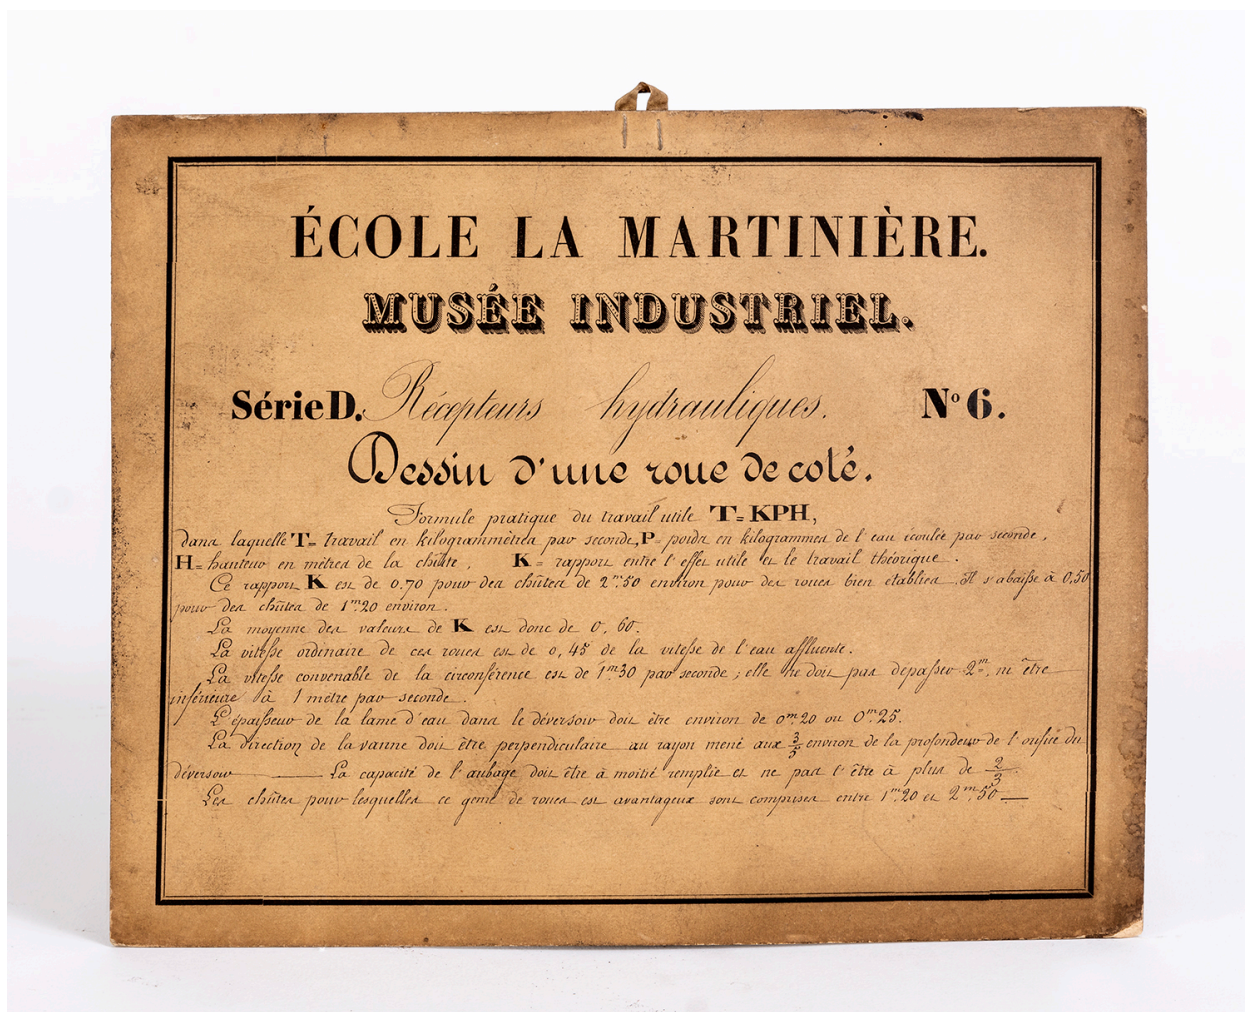 ÉCOLE LA MARTINIÈRE.
MUSÉE INDUSTRIEL.
Série D. Récepteurs hydrauliques. No 6.
Dessin d'une roue de coté.
Formule pratique du travail utile T = KPH,
dans laquelle T = travail en kilogrammètres par seconde, P = poids en kilogrammes de l'eau écoulée par seconde,
H = hauteur en mètres de la chûte, K = rapport entre l'effet utile et le travail théorique.
Ce rapport K est de 0,70 pour des chûtes de 2m.50 environ pour des roues bien établies. Il s'abaisse à 0,50
pour des chûtes de 1m.20 environ.
La moyenne des valeurs de K est donc de 0,60.
La vitesse ordinaire de ces roues est de 0,45 de la vitesse de l'eau affluente.
La vitesse convenable de la circonférence est de 1m.30 par seconde; elle ne doit pas dépasser 2m. ni être
inférieure à 1 mètre par seconde.
L'épaisseur de la lame d'eau dans le déversoir doit être environ de 0m.20 ou 0m.25.
La direction de la vanne doit être perpendiculaire au rayon mené aux 3/5 environ de la profondeur de l'orifice du
déversoir — La capacité de l'aubage doit être à moitié remplie et ne pas l'être à plus de 2/3.
Les chûtes pour lesquelles ce genre de roues est avantageux sont comprises entre 1m.20 et 2m.50 —